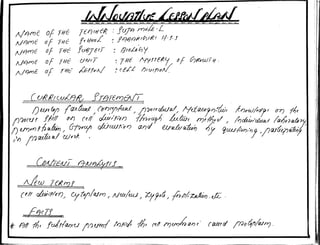 INNOVATIVE LESSON PLAN
NAME OF THE TEACHER : Suja mole. L
NAME OF THE SCHOOL :
NAME OF THE SUBJECT : BIOLOGY
NAME OF THE UNIT : THE MYSTERY OF GROWTH.
NAME OF THE LESSON : CELL DIVISION.
CURRICULAR STATEMENT
Develop factual, conceptual, procedural, Metacognitive knowledge on the
process on cell division through lecture method, Individual laboratory
Demonstration, Group discussion and evaluation by questioning, participating
in practical work.
CONTENT ANALYSIS
NEW TERMS
cell division, cytoplasm, Nucleus, Zygote, fertilization etc.
FACTS
* All the substances present inside the membrane called protoplasm.